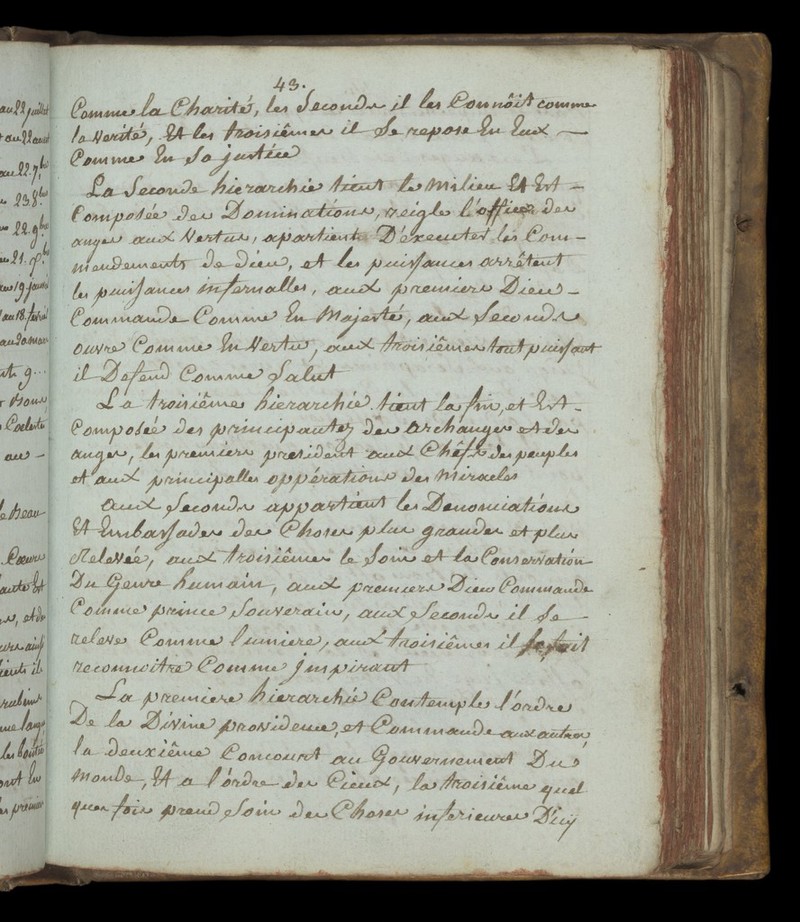 43.
Comme la Charité, les Seconds il les Connôit comme
la Verité, Et les troisiêmes il Se repose En Eux —
Comme En Sa justice
La Seconde hierarchie tient le milieu Et Est -
Composée des Dominations, reigle l'office des
anges aux Vertus, apartient D'éxecuter les Com-
mendements de dieu, et les puissances arrêtent
les puissances infernalles, aux premiers Dieu -
Commande Comme En Majesté, aux Seconds
ouvre Comme En Vertu, aux troisiêmes tout puissant
il Defend Comme Salut
La troisiême hierarchie tient la fin, et Est -
Composée des principautez des archanges et des
anges, les premiers president aux Chêfs des peuples
et aux principalles oppérations des Miracles
aux Seconds appartient les Denonciations
Et Embassades des Choses plus grandes et plus
Relevée, aux troisiêmes le Soin et la Conservation
Du Genre humain, aux premiers Dieu Commande
Comme prince Souverain, aux Seconds il Se
releve Comme lumiere, aux troisiêmes il Se fait
reconnoitre Comme jnspirant
La premiere hierarchie Contemple l'ordre
De la Divine providence, et Commande aux autres,
la deuxiême Concourt au Gouvernement Du
monde, Et a l'ordre des Cieux, la troisiême quel
quesfois prend Soin des Choses inferieures D'icy